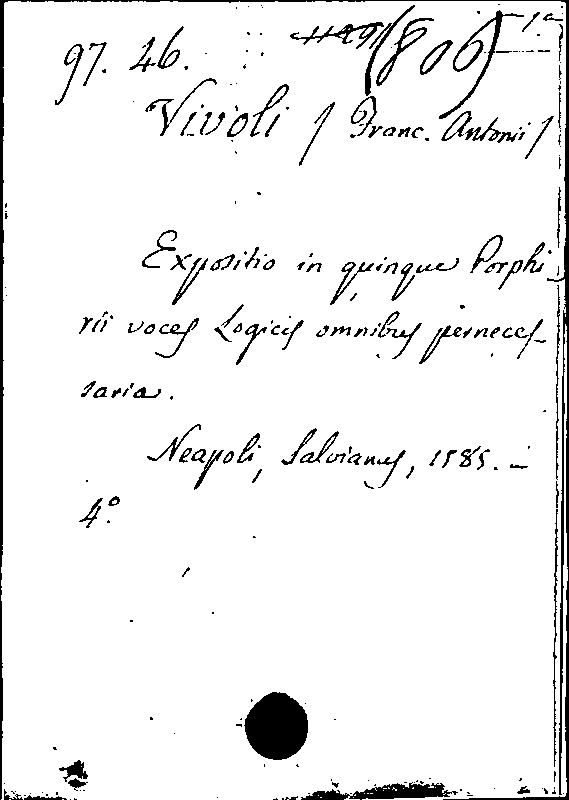 97. 46. (806) 1a
Vivoli / Franc. Antonii /
Expositio in quinque Porphi-
rii voces Logicis omnibus perneces-
saria.
Neapoli, Salvianus, 1585. –
4º